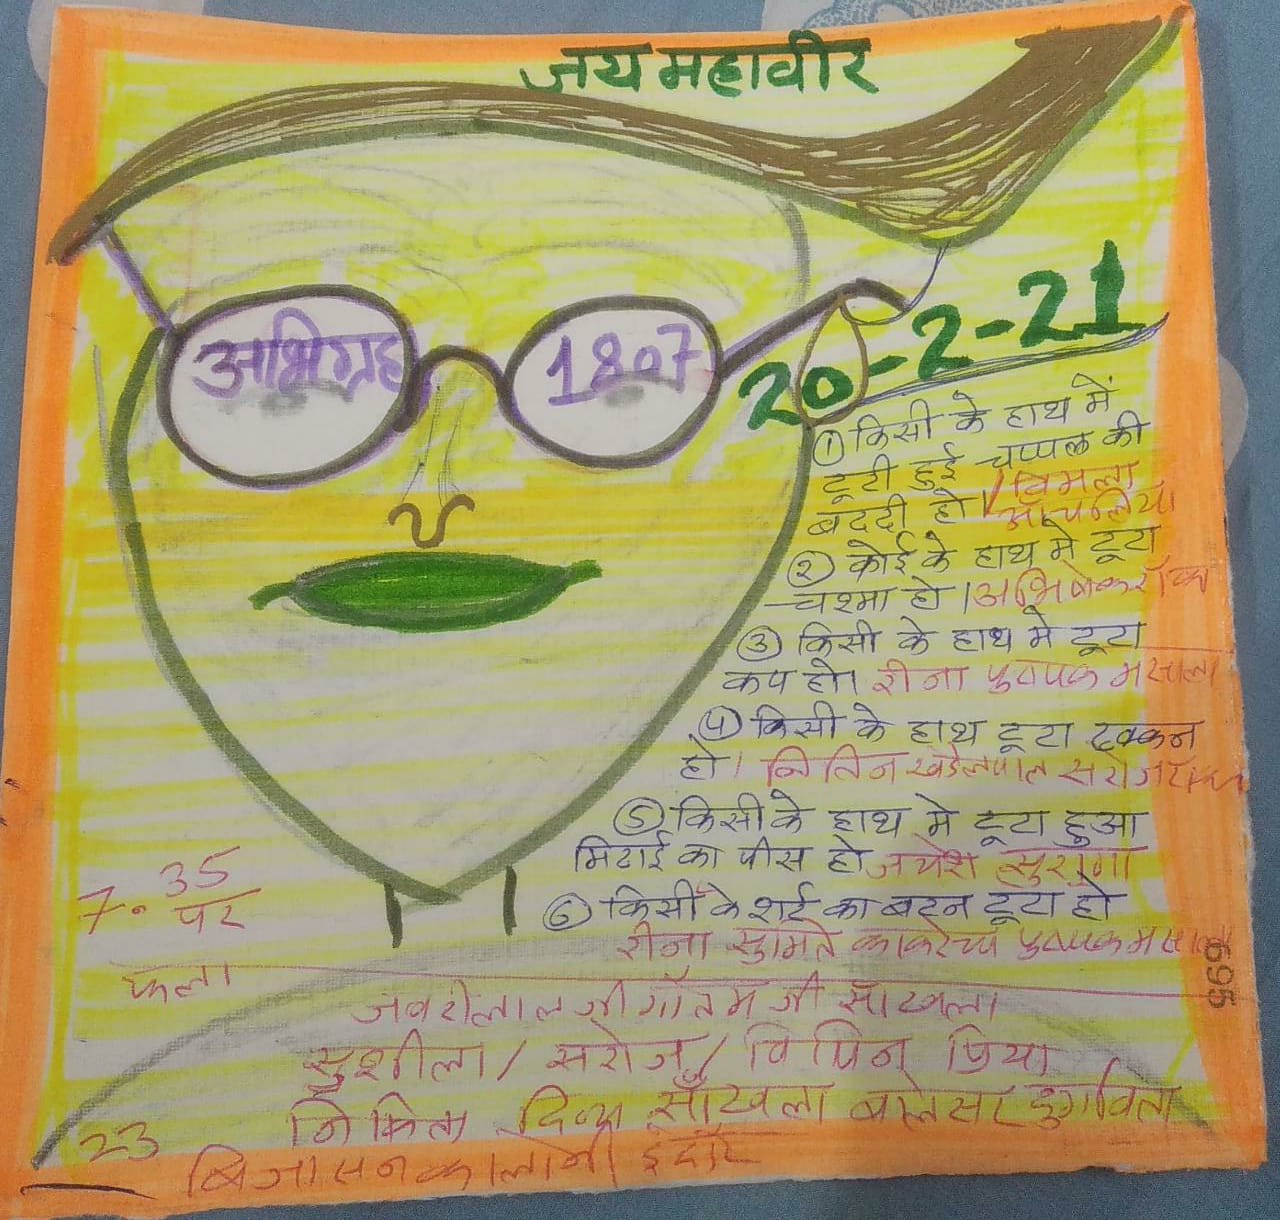 जय महावीर
अभिग्रह
1807
20-2-21
① किसी के हाथ में
टूटी हुई चप्पल की
बददी हो। विमला
आँचलिया
② कोई के हाथ मे टूटा
चश्मा हो।
③ किसी के हाथ मे टूटा
कप हो। रीना
④ किसी के हाथ टूटा ढक्कन
हो। नितिन
⑤ किसी के हाथ मे टूटा हुआ
मिठाई का पीस हो जयेश सुराणा
⑥ किसी के शर्ट का बटन टूटा हो
रीना
7.35
पर
फला
जवरीलाल जी गौतम जी साँखला
सुशीला / सरोज / विपिन प्रिया
दिव्या साँखला
23
बिजासन कालोनी इंदौर
695